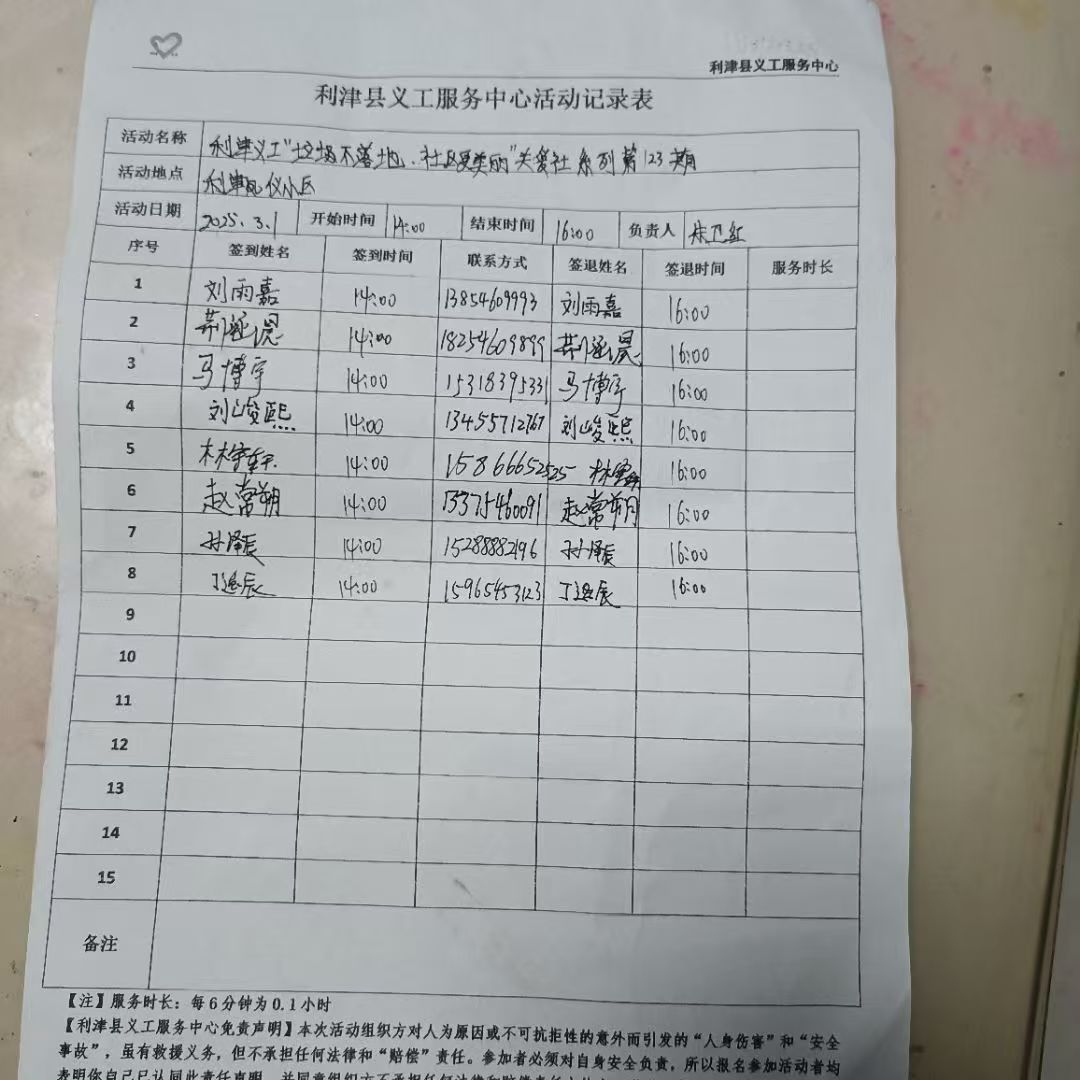 利津县义工服务中心
利津县义工服务中心活动记录表
活动名称 利津义工"垃圾不落地、社区更美丽"关爱社系列第123期
活动地点 利津凤仪小区
活动日期 2025.3.1 开始时间 14:00 结束时间 16:00 负责人 朱卫红
序号 签到姓名 签到时间 联系方式 签退姓名 签退时间 服务时长
1 刘雨嘉 14:00 13854609993 刘雨嘉 16:00
2 14:00 18254609899 16:00
3 马博宇 14:00 15318395331 马博宇 16:00
4 刘峻熙 14:00 13455712767 刘峻熙 16:00
5 14:00 15866652525 16:00
6 赵常朔 14:00 13375460091 赵常朔 16:00
7 孙泽辰 14:00 15288882196 孙泽辰 16:00
8 丁逸辰 14:00 15965453123 丁逸辰 16:00
9
10
11
12
13
14
15
备注
【注】服务时长：每6分钟为0.1小时
【利津县义工服务中心免责声明】本次活动组织方对人为原因或不可抗拒性的意外而引发的“人身伤害”和“安全
事故”，虽有救援义务，但不承担任何法律和“赔偿”责任。参加者必须对自身安全负责，所以报名参加活动者均
表明你自己已认同此责任声明，并同意组织方不承担任何法律和赔偿责任